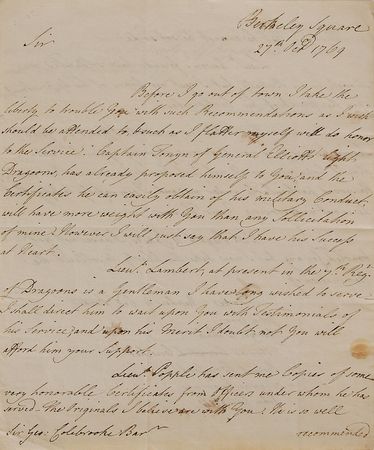 Berkeley Square
27th Octr 1769
Sir
Before I go out of town I take the
liberty to trouble You with such Recommendations as I wish
should be attended to, & such as I flatter myself will do honor
to the Service: Captain Tonyn of General Elliott's light
Dragoons, has already proposed himself to You; and the
Certificates he can easily obtain of his military Conduct
will have more weight with You than any Sollicitation
of mine: However I will just say that I have his Success
at Heart.
Lieut. Lambert, at present in the 7th Regt.
of Dragoons is a Gentleman I have long wished to serve
I shall direct him to wait upon You with Testimonials of
his Service; and upon his Merit I doubt not You will
afford him your Support.
Lieut. Popple has sent me Copies of some
very honorable Certificates from Officers under whom he has
served - The Originals I believe are with You: He is so well
Sir Geo: Colebrooke Bart.
recommended